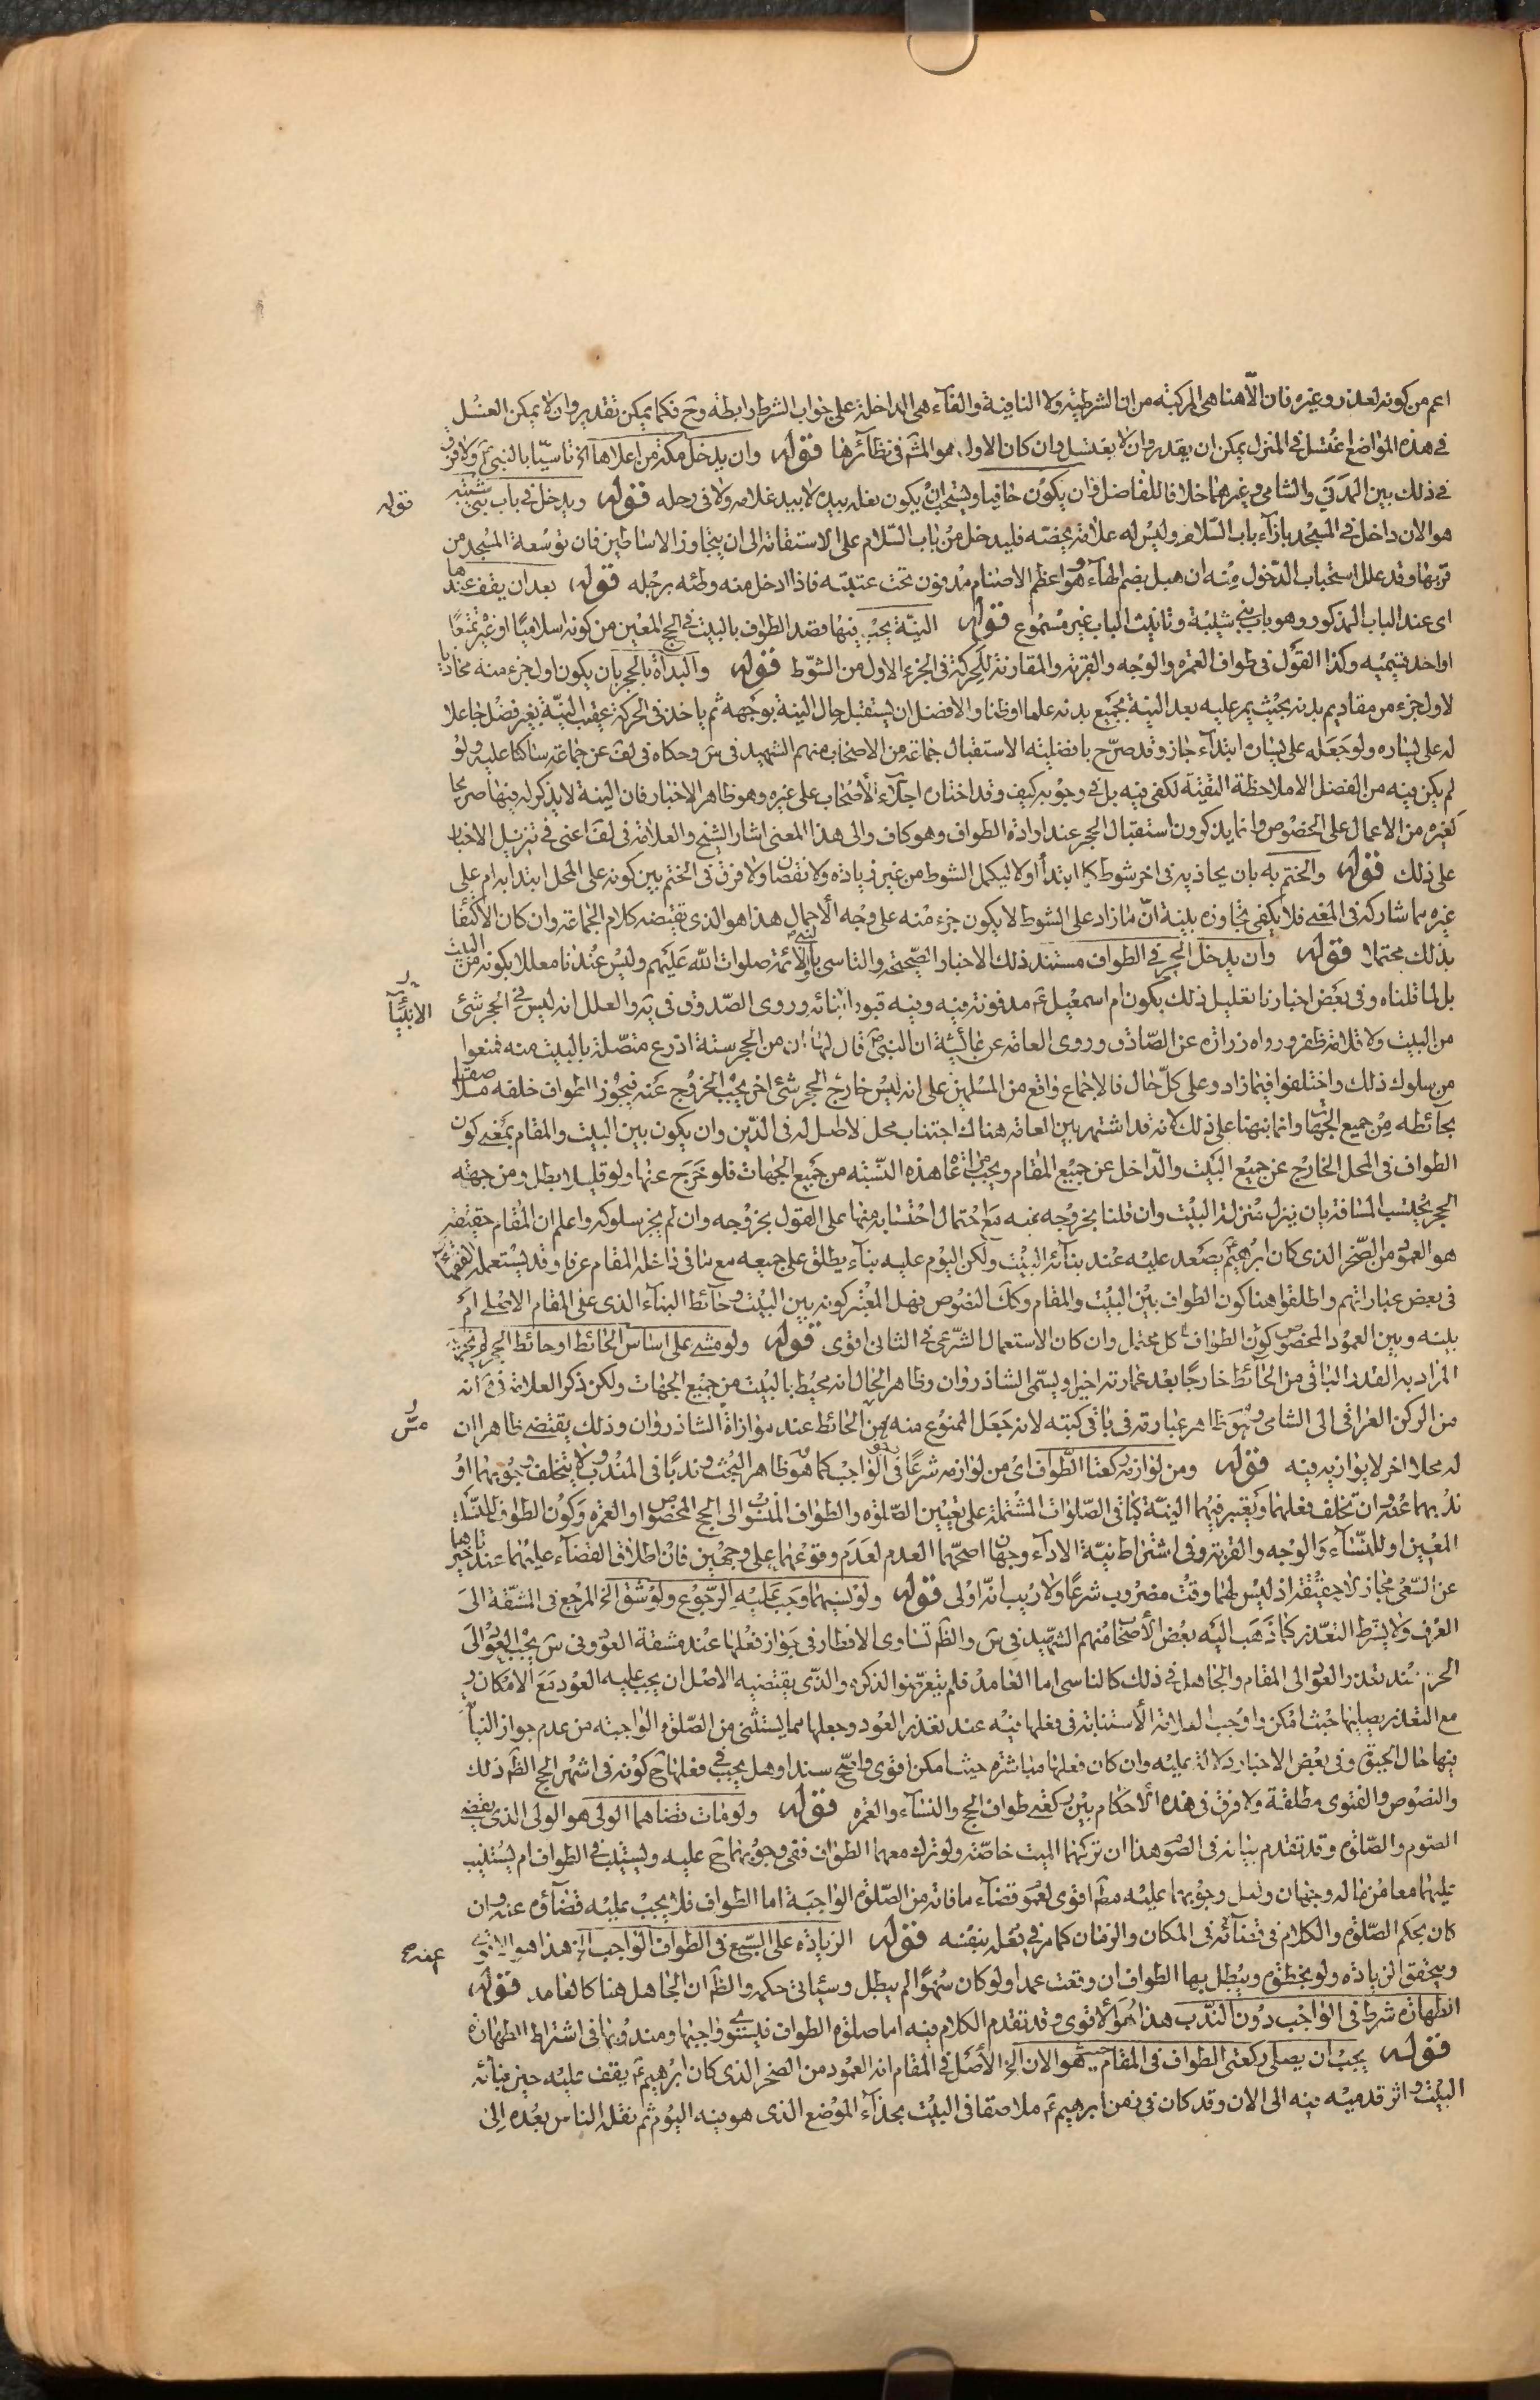 اعم من كونه لعذر وغيره فان الا هنا هى المركبة من ان الشرطية ولا النافية والفاء هى الداخلة على جواب الشرط رابطة وح فكما يمكن تقدير وان لا يمكن الغسل
فى هذه المواضع اغتسل فى المنزل يمكن ان يقدر وان لا يغتسل وان كان الاول هو المش فى نظائرها قوله وان يدخل مكة من اعلاها الخ تاسيا بالنبى ص ولا فرق
فى ذلك بين المدنى والشامى وغيرهما خلافا للفاضل وان يكون حافيا ويستحب ان يكون نعله بيده لا بيد غلامه ولا فى رحله قوله ويدخل فى باب بنى شيبة
هو الان داخل فى المسجد بازاء باب السلام وليس له علامة تخصه فليدخل من باب السلام على الاستقامة الى ان يتجاوز الاساطين فان توسعة المسجد من
قربها وقد علل استحباب الدخول منه ان هبل بضم الهاء وهو اعظم الاصنام مدفون تحت عتبته فاذا دخل منه وطئه برجله قوله بعد ان يقف عندها
اى عند الباب المذكور وهو باب بنى شيبة وتانيث الباب غير مسموع قوله النية يجب فيها قصد الطواف بالبيت فى الحج المعين من كونه اسلاميا او غيره تمتعا
او احد قسيميه وكذا القول فى طواف العمرة والوجه والقربة والمقارنة للحركة فى الجزء الاول من الشوط قوله والبداة بالحجر بان يكون اول جزء منه محاذيا
لاول جزء من مقاديم بدنه بحيث يمر عليه بعد النية بجميع بدنه علما او ظنا والافضل ان يستقبل حال النية بوجهه ثم ياخذ فى الحركة عقيب النية بغير فصل جاعلا
له على يساره ولو جعله على يساره ابتداء جاز وقد صرح بافضلية الاستقبال جماعة من الاصحاب منهم الشهيد فى س وحكاه فى لف عن جماعة ساكتا عليه ولو
لم يكن فيه من الفضل الا ملاحظة التقية لكفى فيه بل فى وجوبه كيف وقد اختاره اجلاء الاصحاب على غيره وهو ظاهر الاخبار فان النية لا يذكر له فيها صريحا
كغيره من الاعمال على الخصوص وانما يذكرون استقبال الحجر عند ارادة الطواف وهو كاف والى هذا المعنى اشار الشيخ والعلامة فى لف اعنى فى تنزيل الاخبار
على ذلك قوله والختم به بان يحاذيه فى اخر شوط كما ابتدأ اولا ليكمل الشوط من غير زيادة ولا نقصان ولا فرق فى الختم بين كونه على المحل ابتدا به ام على
غيره مما شاركه فى المعنى فلا يكفى تجاوزه بنية ان ما زاد على الشوط لا يكون جزء منه على وجه الاجمال هذا هو الذى يقتضيه كلام الجماعة وان كان الاكتفا
بذلك محتملا قوله وان يدخل الحجر فى الطواف مستند ذلك الاخبار الصحيحة والتاسى بالنبى والائمة صلوات الله عليهم وليس عندنا معللا بكونه من البيت
بل لما قلناه وفى بعض اخبارنا تعليل ذلك بكون ام اسمعيل ع مدفونة فيه وفيه قبور انبيائه وروى الصدوق فى يه والعلل انه ليس فى الحجر شئ
من البيت ولا قلامة ظفر ورواه زرارة عن الصادق وروى العامة عن عائشة ان النبى ص قال لها ان من الحجر ستة اذرع متصلة بالبيت منه فمنعوا
من سلوك ذلك واختلفوا فيما زاد وعلى كل حال فالاجماع واقع من المسلمين على انه ليس خارج الحجر شئ اخر يجب الخروج عنه فيجوز الطواف خلفه ملاصقا
بحائطه من جميع الجهات وانما نبهنا على ذلك لانه قد اشتهر بين العامة هناك اجتناب محل لا اصل له فى الدين وان يكون بين البيت والمقام بمعنى كون
الطواف فى المحل الخارج عن جميع البيت والداخل عن جميع المقام ويجب مراعاة هذه النسبة من جميع الجهات فلو خرج عنها ولو قليلا بطل ومن جهة
الحجر يحتسب المسافة بان ينزل منزلة البيت وان قلنا بخروجه عنه مع احتمال احتسابه منها على القول بخروجه وان لم يجز سلوكه واعلم ان المقام حقيقة
هو العمود من الصخر الذى كان ابرهيم ع يصعد عليه عند بنائه البيت ولكن اليوم عليه بناء يطلق على جميعه مع ما فى داخله المقام عرفا وقد يستعمله الفقهاء
فى بعض عباراتهم واطلقوا هنا كون الطواف بين البيت والمقام وكك النصوص فهل المعتبر كونه بين البيت وحائط البناء الذى على المقام الاصلى ام
بينه وبين العمود المخصوص كون الطواف كل محتمل وان كان الاستعمال الشرعى فى الثانى اقوى قوله ولو مشى على اساس الحائط او حائط الحجر لم يجزئه
المراد به القدر الباقى من الحائط خارجا بعد عمارته اخيرا ويسمى الشاذروان وظاهر الحال انه محيط بالبيت من جميع الجهات ولكن ذكر العلامة فى انه
من الركن العراقى الى الشامى وهو ظاهر عبارته فى باقى كتبه لانه جعل الممنوع منه مس الحائط عند موازاة الشاذروان وذلك يقتضى ظاهرا ان
له محلا اخر لا يوازيه فيه قوله ومن لوازمه ركعتا الطواف اى من لوازمه شرعا فى الواجب كما هو ظاهر البحث وندبا فى المندوب ولا يتخلف وجوبهما او
ندبهما عنه وان تخلف فعلهما ويعتبر فيهما النية كباقى الصلوات المشتملة على تعيين الصلوة والطواف المنسوب الى الحج المخصوص او العمرة وكون الطواف للنساء
المعين او للنساء والوجه والقربة وفى اشتراط نية الاداء وجهان اصحهما العدم لعدم وقوعهما على وجهين فان اطلاق القضاء عليهما عند تاخيرها
عن السعى مجاز لا حقيقة اذ ليس لهما وقت مضروب شرعا ولا ريب انه اولى قوله ولو نسيهما وجب عليه الرجوع ولو شق الخ المرجع فى المشقة الى
العرف ولا يشترط التعذر كما ذهب اليه بعض الاصحاب منهم الشهيد فى س والظ تساوى الاقطار فى جواز فعلها عند مشقة العود وفى س يجب العود الى
الحرم عند تعذر العود الى المقام والجاهل فى ذلك كالناسى اما العامد فلم يتعرضوا لذكره والذى يقتضيه الاصل ان يجب عليه العود مع الامكان و
مع التعذر يصليها حيث امكن واوجب العلامة الاستنابة فى فعلها فيه عند تعذر العود وجعلها مما يستثنى من الصلوة الواجبة من عدم جواز النيابة
فيها حال الحيوة وفى بعض الاخبار دلالة عليه وان كان فعلها مباشرة حيث امكن اقوى واصح سندا وهل يجب فى فعلها ح كونه فى اشهر الحج الظ ذلك
والنصوص والفتوى مطلقة ولا فرق فى هذه الاحكام بين ركعتى طواف الحج والنساء والعمرة قوله ولو مات قضاهما الولى هو الولى الذى يقضى
الصوم والصلوة وقد تقدم بيانه فى الصوم هذا ان تركهما الميت خاصة ولو ترك معهما الطواف ففى وجوبهما ح عليه ويستنيب فى الطواف ام يستنيب
عليهما معا من ماله وجهان ولعل وجوبهما عليه مط اقوى لعموم قضاء ما فاته من الصلوة الواجبة اما الطواف فلا يجب عليه قضاؤه عنه وان
كان بحكم الصلوة والكلام فى قضائه فى المكان والزمان كما مر فى فعله بنفسه قوله الزيادة على السبع فى الطواف الواجب الخ هذا هو الاقوى
ويتحقق الزيادة ولو بخطوة ويبطل بها الطواف ان وقعت عمدا ولو كان سهوا لم يبطل وسيأتى حكمه والظ ان الجاهل هنا كالعامد قوله
الطهارة شرط فى الواجب دون الندب هذا هو الاقوى وقد تقدم الكلام فيه اما صلوة الطواف فيستوى واجبها ومندوبها فى اشتراط الطهارة
قوله يجب ان يصلى ركعتى الطواف فى المقام حيث هو الان الخ الاصل فى المقام انه العمود من الصخر الذى كان ابرهيم ع يقف عليه حين بنائه
البيت واثر قدميه فيه الى الان وقد كان فى زمن ابرهيم ع ملاصقا فى البيت بحذاء الموضع الذى هو فيه اليوم ثم نقله الناس بعده الى
قوله
الانبياء
عنه